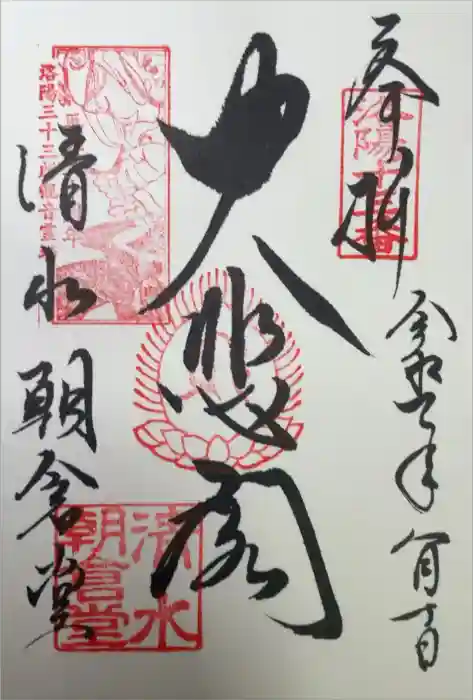 奉拝
洛陽十三番
令和二年
大悲閣
洛陽三十三所観音霊
清水 朝倉堂
清水
朝倉堂